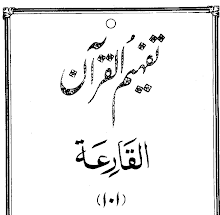 تفہیم القرآن
القَارِعَة
(۱۰۱)